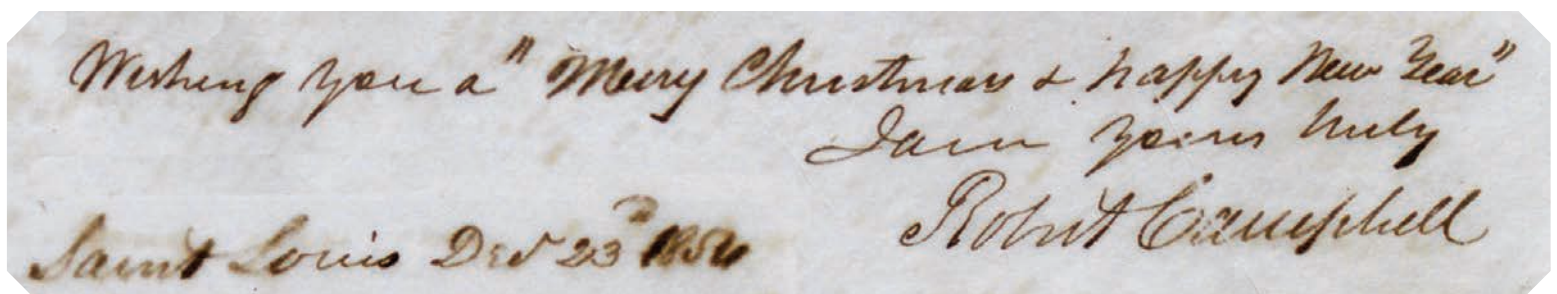 Wishing you a "Merry Christmas & happy New Year"
I am yours truly
Robert Campbell
Saint Louis Dec 23d